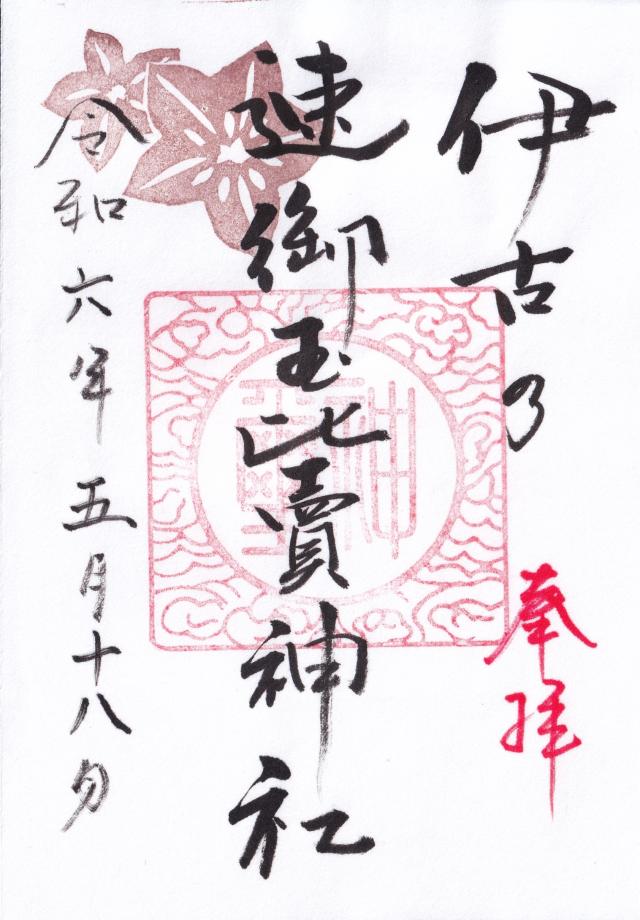 伊古乃
奉拝
速御玉比賣神社
令和六年五月十八日